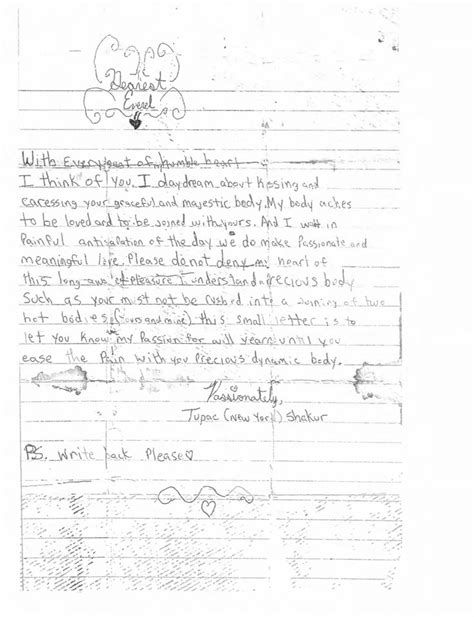 Dearest
With Every beat of my humble heart
I think of you. I daydream about kissing and
caressing your graceful and majestic body. My body aches
to be loved and to be joined with yours. And I wait in
Painful of the day we do make Passionate and
meaningful love. Please do not deny my heart of
this long of pleasure I understand precious body
Such as your must not be rushed into a Joining of two
hot bodies, (yours and mine) this small letter is to
let you know my Passion for will yearn until you
ease the Pain with you Precious dynamic body.
Passionately,
Tupac (New York) Shakur
P.S. Write back Please♡